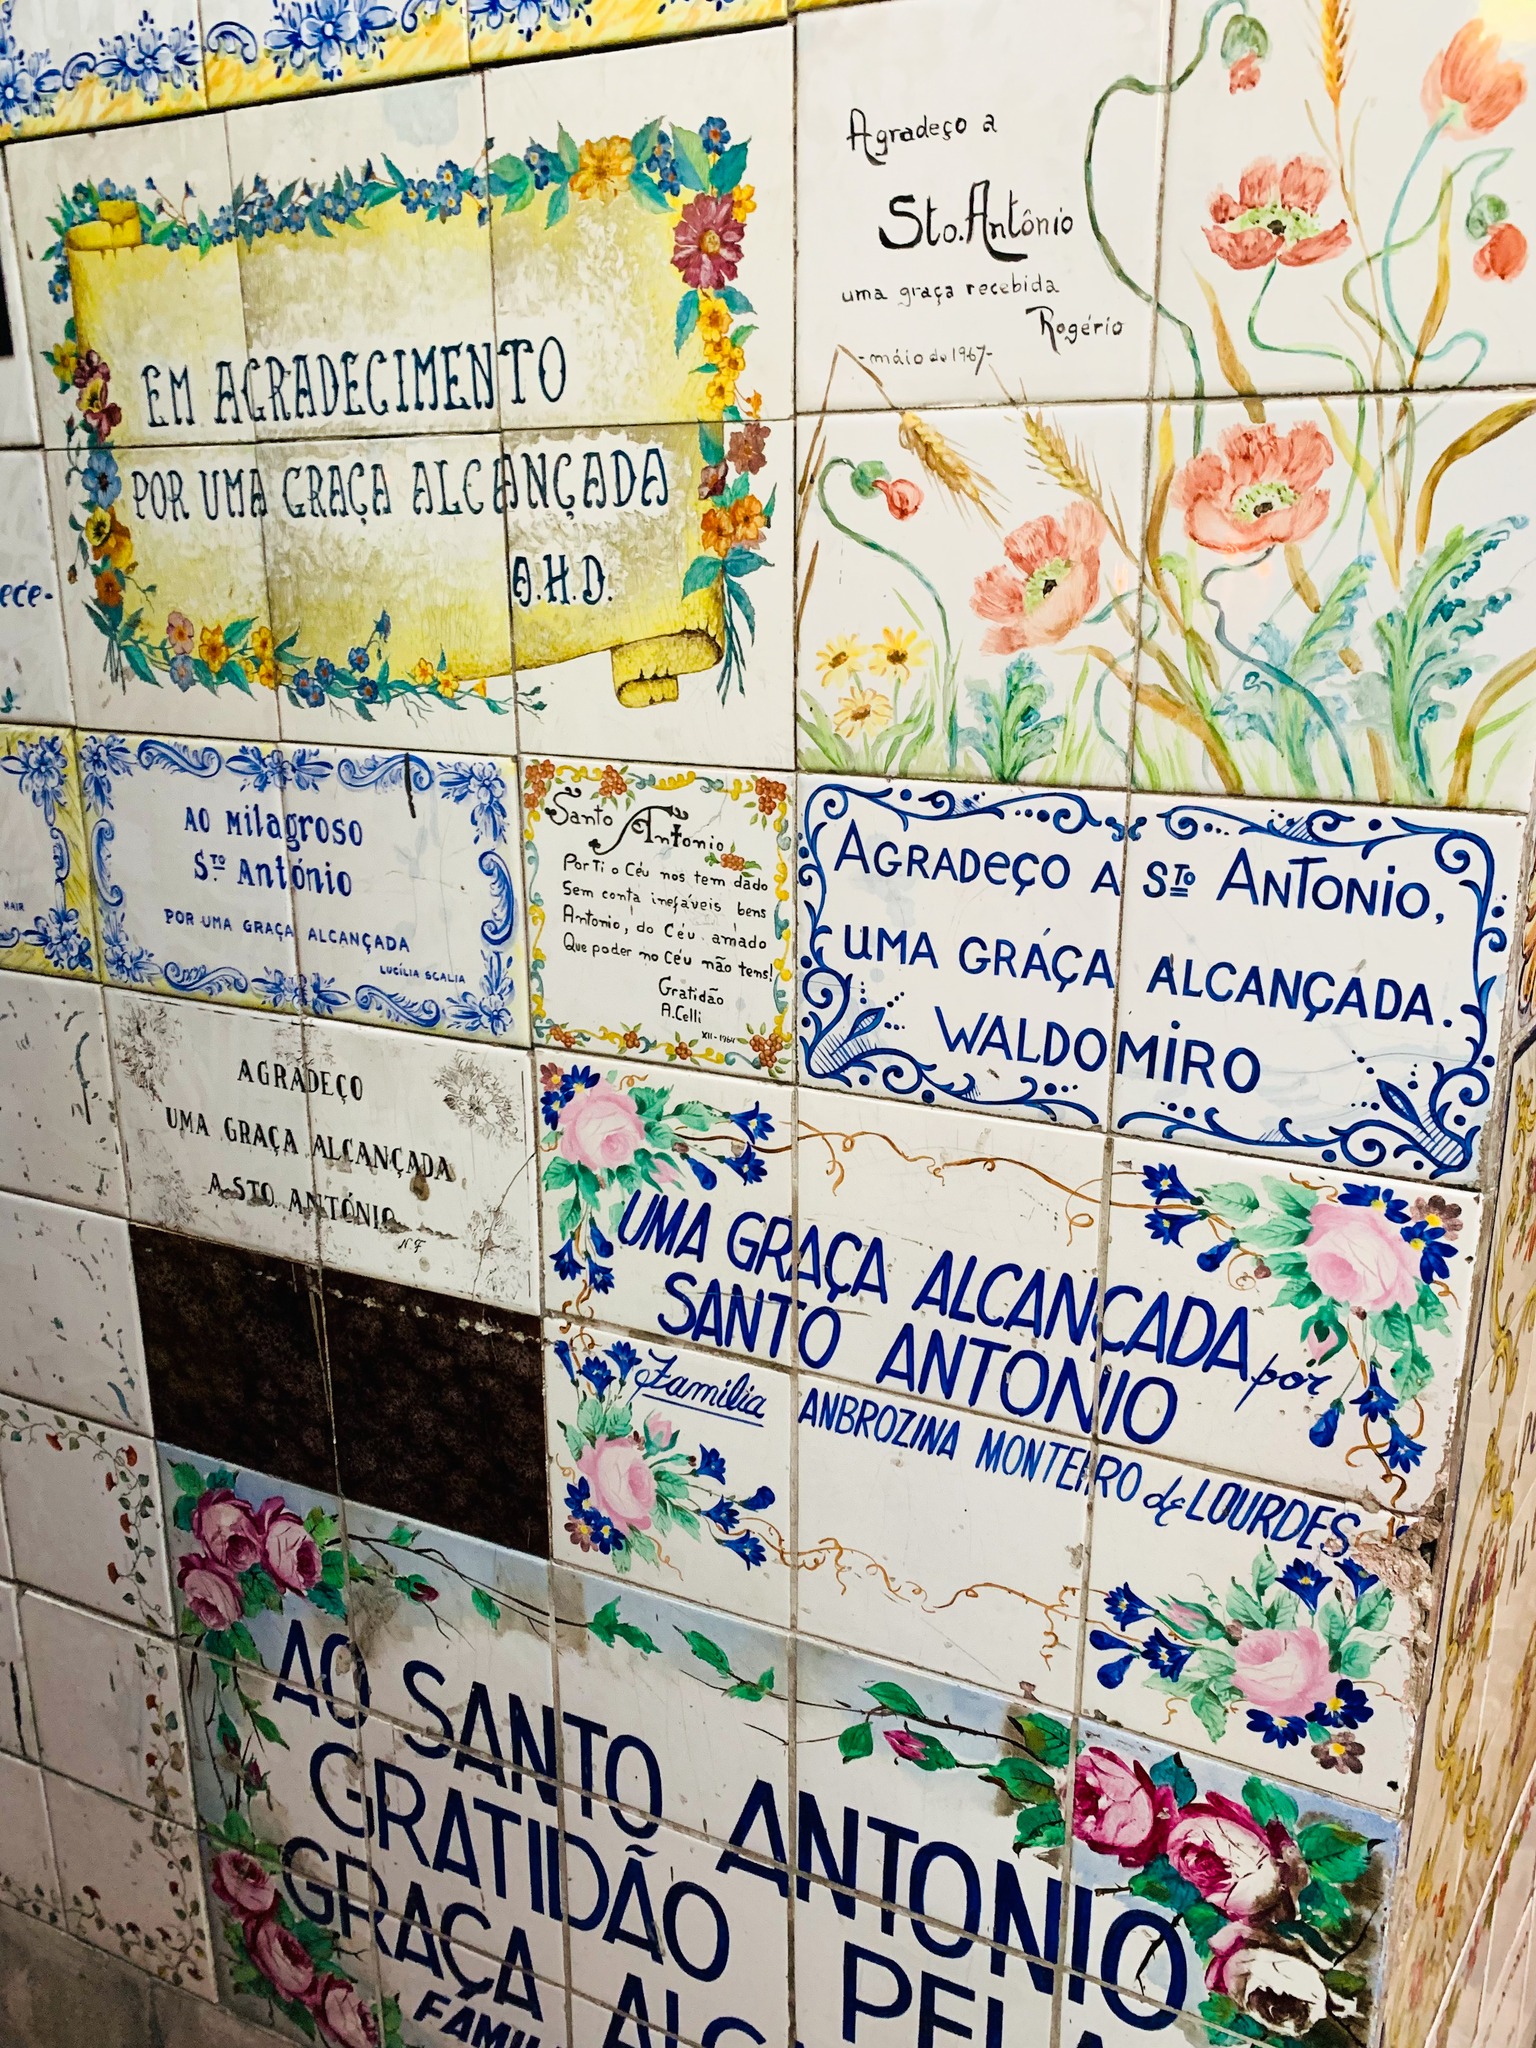 EM AGRADECIMENTO
POR UMA GRAÇA ALCANÇADA
O.H.D.
Agradeço a
Sto. Antônio
uma graça recebida
Rogério
- máio de 1967 -
ece-
HAIR
AO Milagroso
STO António
POR UMA GRAÇA ALCANÇADA
LUCÍLIA SCALIA
Santo Antonio
Por Ti o Céu nos tem dado
Sem conta inefáveis bens
Antonio, do Céu amado
Que poder no Céu não tens!
Gratidão
A. Celli
XII - 1964
AGRADEÇO A STO ANTONIO,
UMA GRÁÇA ALCANÇADA.
WALDOMIRO
AGRADEÇO
UMA GRAÇA ALCANÇADA
A STO. ANTÓNIO
N.F
UMA GRAÇA ALCANÇADA por
SANTO ANTONIO
Familia ANBROZINA MONTEIRO de LOURDES
AO SANTO ANTONIO
GRATIDÃO PELA
GRAÇA ALC
FAMIL